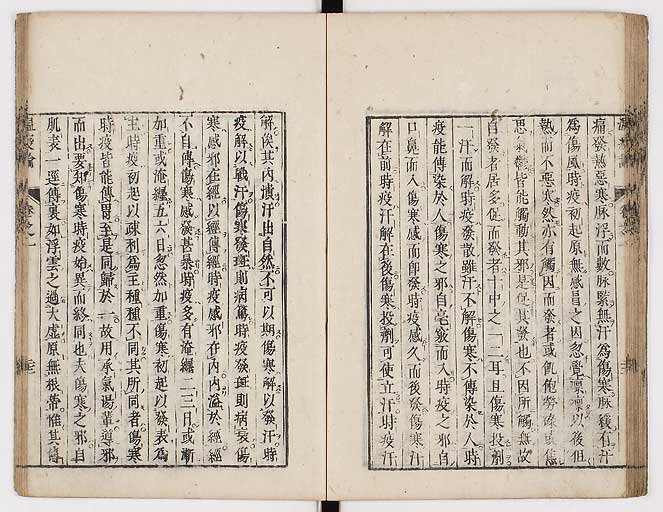 痛發熱惡寒脉浮而數脉緊無汗爲傷寒脉緩有汗
爲傷風時疫初起原無感冒之因忽覺凛凛以後但
熱而不惡寒然亦有觸因而發者或飢飽勞碌或焦
思氣鬱皆能觸動其邪是促其發也不因所觸無故
自發者居多促而發者十中之一二耳且傷寒投劑
一汗而解時疫發散雖汗不解傷寒不傳染於人時
疫能傳染於人傷寒之邪自毫竅而入時疫之邪自
口鼻而入傷寒感而即發時疫感久而後發傷寒汗
解在前時疫汗解在後傷寒投劑可使立汗時疫汗
解俟其内潰汗出自然不可以期傷寒解以發汗時
疫解以戰汗傷寒發斑則病篤時疫發斑則病衰傷
寒感邪在經以經傳經時疫感邪在内内溢於經經
不自傳傷寒感發甚暴時疫多有淹纏二三日或漸
加重或淹纏五六日忽然加重傷寒初起以發表爲
主時疫初起以疎利爲主種種不同其所同者傷寒
時疫皆能傳胃至是同歸於一故用承氣湯輩導邪
而出要知傷寒時疫始異而終同也夫傷寒之邪自
肌表一逕傳裏如浮雲之過太虛原無根蔕惟其傳
温疫論
卷之一